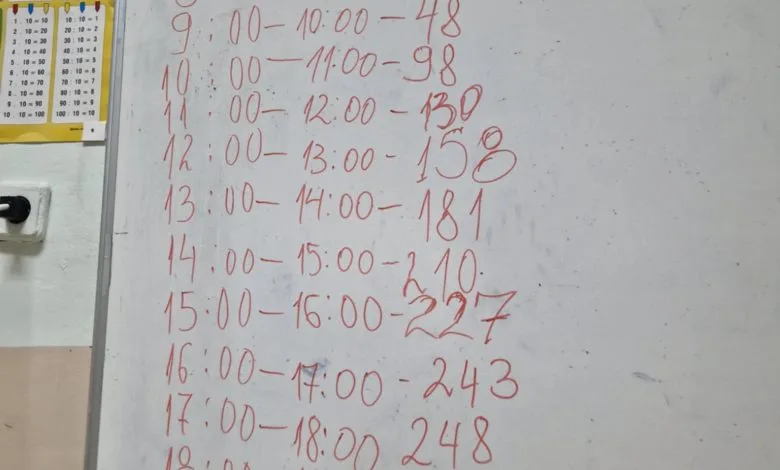 1 . 10 = 10 10 : 10 = 1
2 . 10 = 20 20 : 10 = 2
3 . 10 = 30 30 : 10 = 3
4 . 10 = 40 40 : 10 = 4
5 . 10 = 50 50 : 10 = 5
6 . 10 = 60 60 : 10 = 6
7 . 10 = 70 70 : 10 = 7
8 . 10 = 80 80 : 10 = 8
9 . 10 = 90 90 : 10 = 9
10 . 10 = 100 100 : 10 = 10
9:00-10:00-48
10:00-11:00-98
11:00-12:00-130
12:00-13:00-158
13:00-14:00-181
14:00-15:00-210.
15.00-16:00-227
16:00-17:00-243
17:00-18:00 248